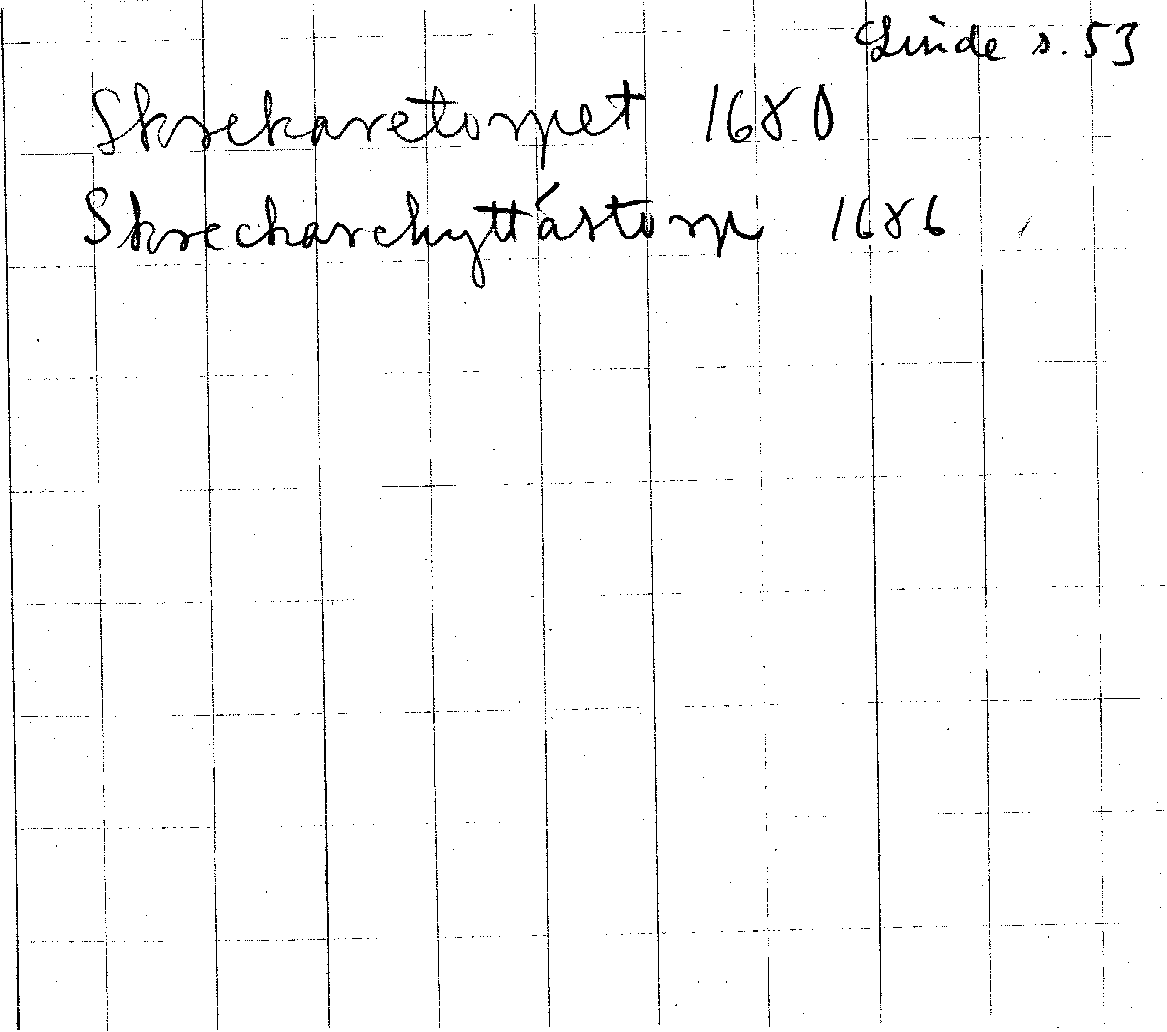 Linde s. 53
Skrekaretorpet 1680
Skrecharehyttástorp 1686